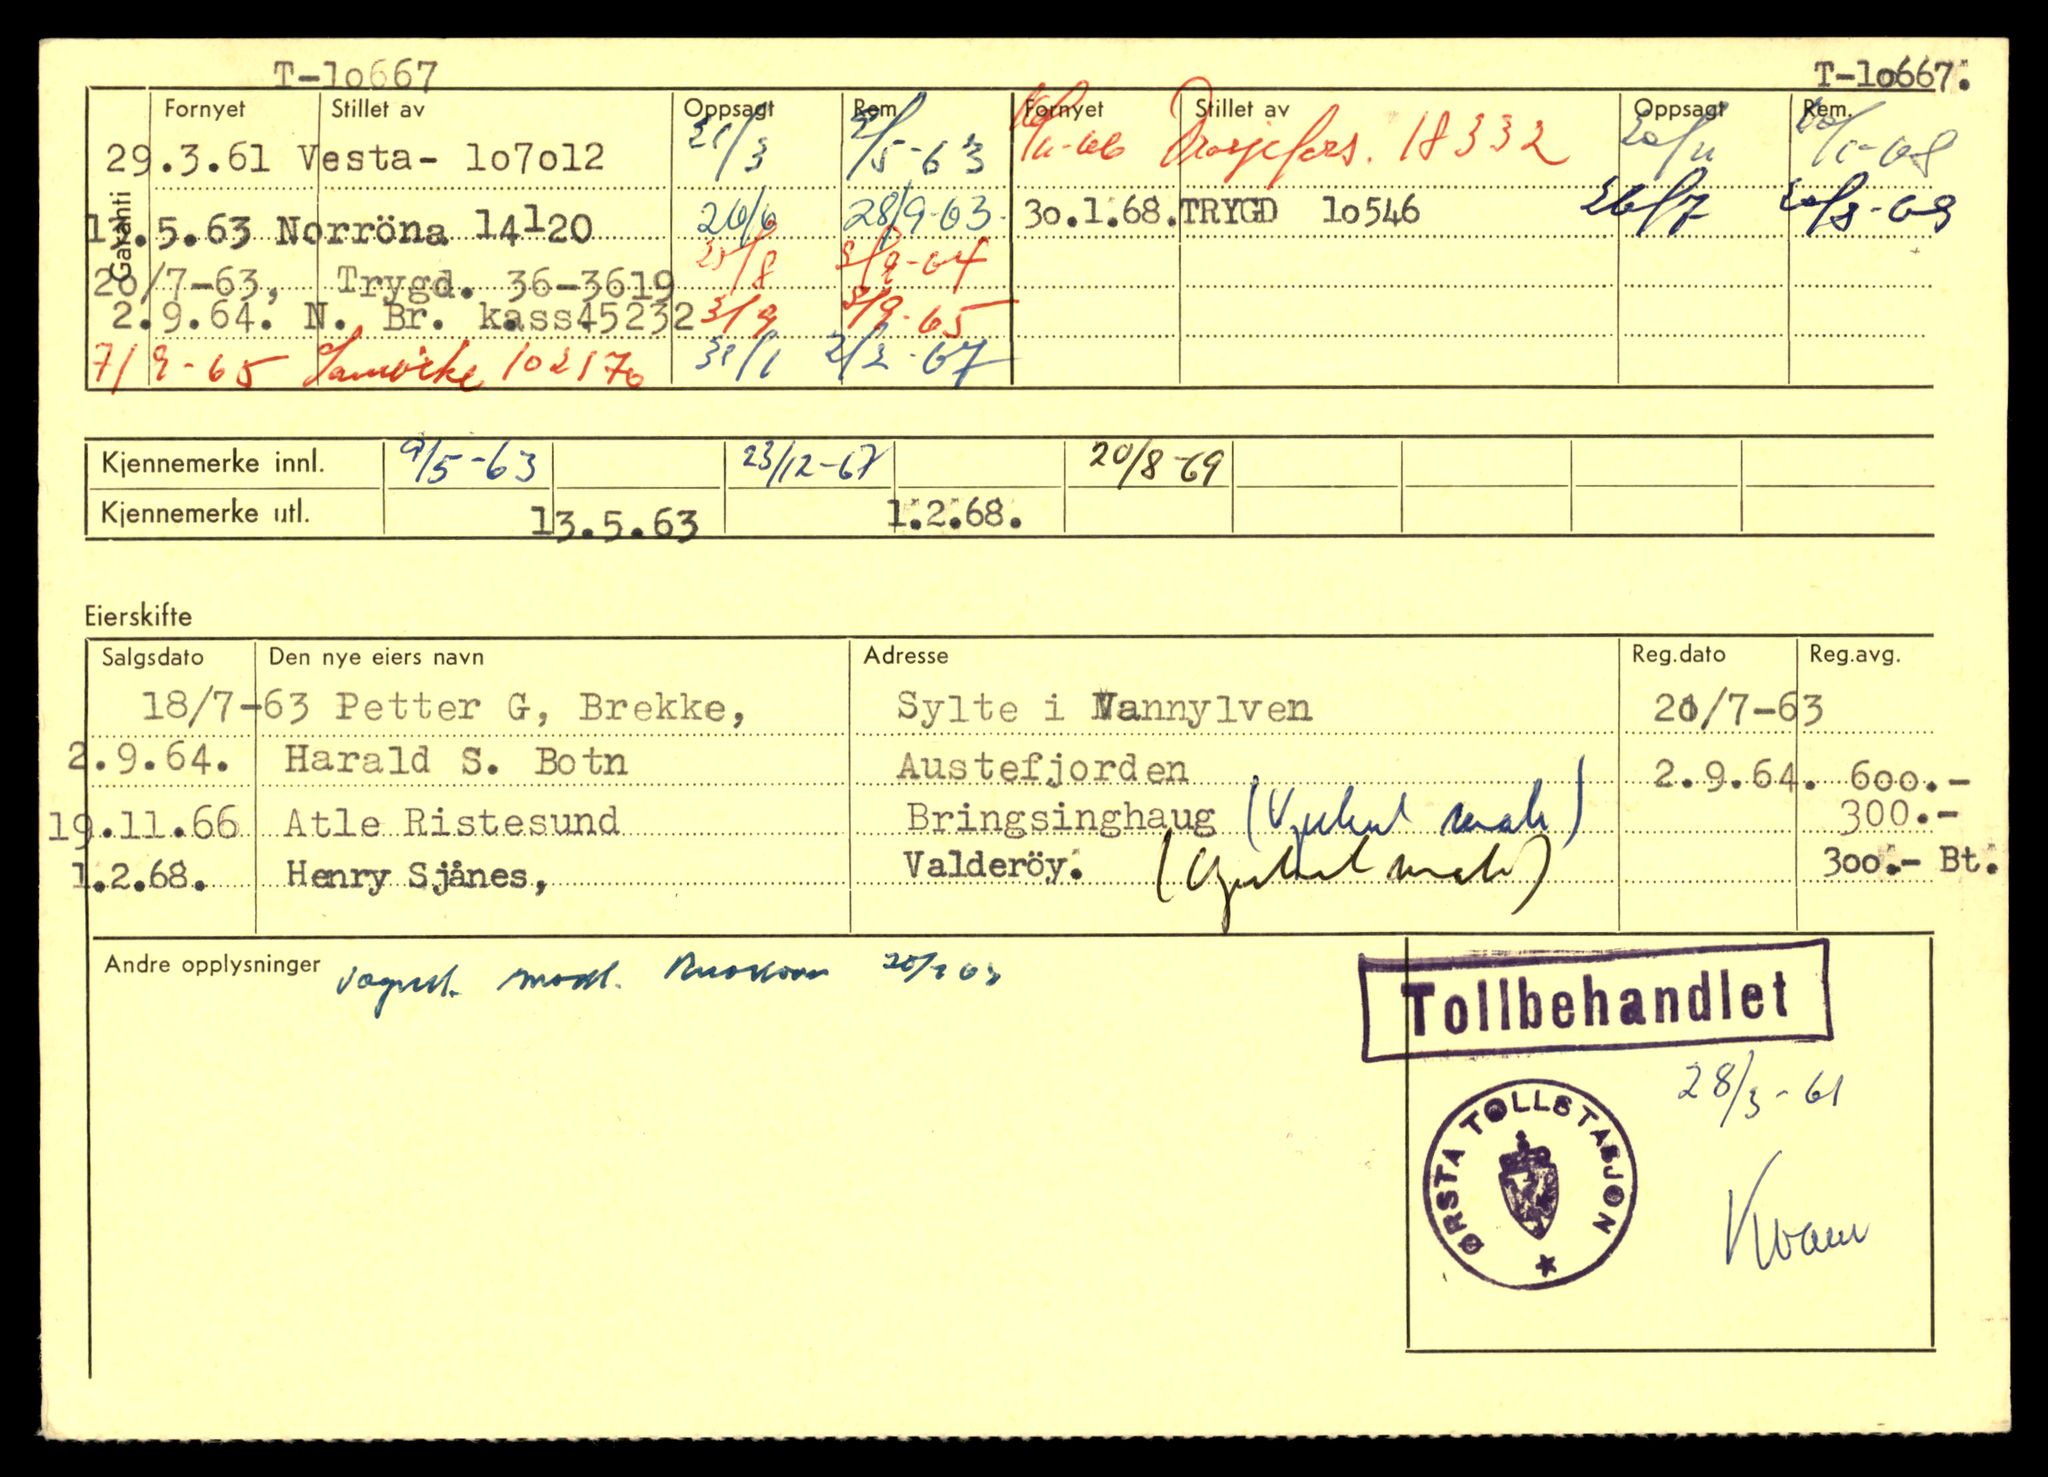 T-10667 T-10667.
Garanti
Fornyet Stillet av Oppsagt Rem. Fornyet Stillet av Oppsagt Rem.
29.3.61 Vesta- 107012 21/3 2/5-63 18332
13.5.63 Norröna 14120 20/6 28/9-63. 30.1.68. TRYGD 10546 26/7
20/7-63, Trygd. 36-3619 25/8 3/9-64
2.9.64. N. Br. kass45232 3/9 3/9-65
7/9-65 Samvirke 102170 31/1 2/2-67
Kjennemerke innl. 9/5-63 23/12-67 20/8-69
Kjennemerke utl. 13.5.63 1.2.68.
Eierskifte
Salgsdato Den nye eiers navn Adresse Reg.dato Reg.avg.
18/7-63 Petter G, Brekke, Sylte i Vannylven 20/7-63
2.9.64. Harald S. Botn Austefjorden 2.9.64. 600.-
19.11.66 Atle Ristesund Bringsinghaug 300.-
1.2.68. Henry Sjånes, Valderöy. 300.- Bt.
Andre opplysninger
Tollbehandlet
28/3-61
ØRSTA TOLLSTASJON
Kvam